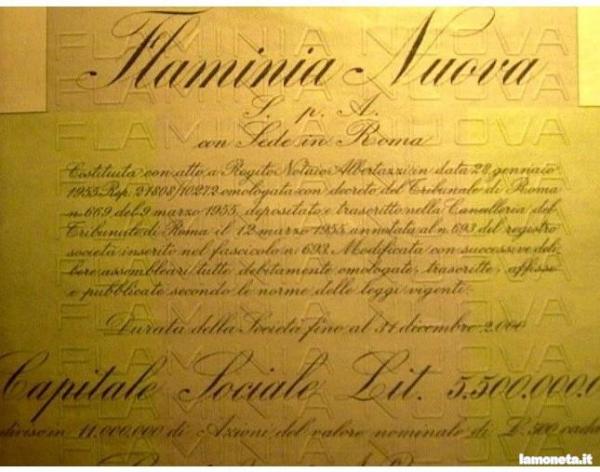 Flaminia Nuova
S. p. A.
con Sede in Roma
Costituita con atto a Rogito Notaio Albertazzi in data 28 gennaio
1955 Rep. 21808/10272 omologata con decreto del Tribunale di Roma
n. 669 del 9 marzo 1955, depositato e trascritto nella Cancelleria del
Tribunale di Roma il 12 marzo 1955 annotata al n. 693 del registro
società inserito nel fascicolo n. 693. Modificata con successive deli-
bere assembleari tutte debitamente omologate, trascritte, affisse
e pubblicate secondo le norme delle leggi vigenti.
Durata della Società fino al 31 dicembre 2.000
Capitale Sociale Lit. 5.500.000.0
diviso in 11.000.000 di Azioni del valore nominale di L. 500 cada
FLAMINIA NUOVA
FLAMINIA NUOVA
FLAMINIA NUOVA
FLAMINIA NUOVA
FLAMINIA NUOVA
FLAMINIA NUOVA
lamoneta.it